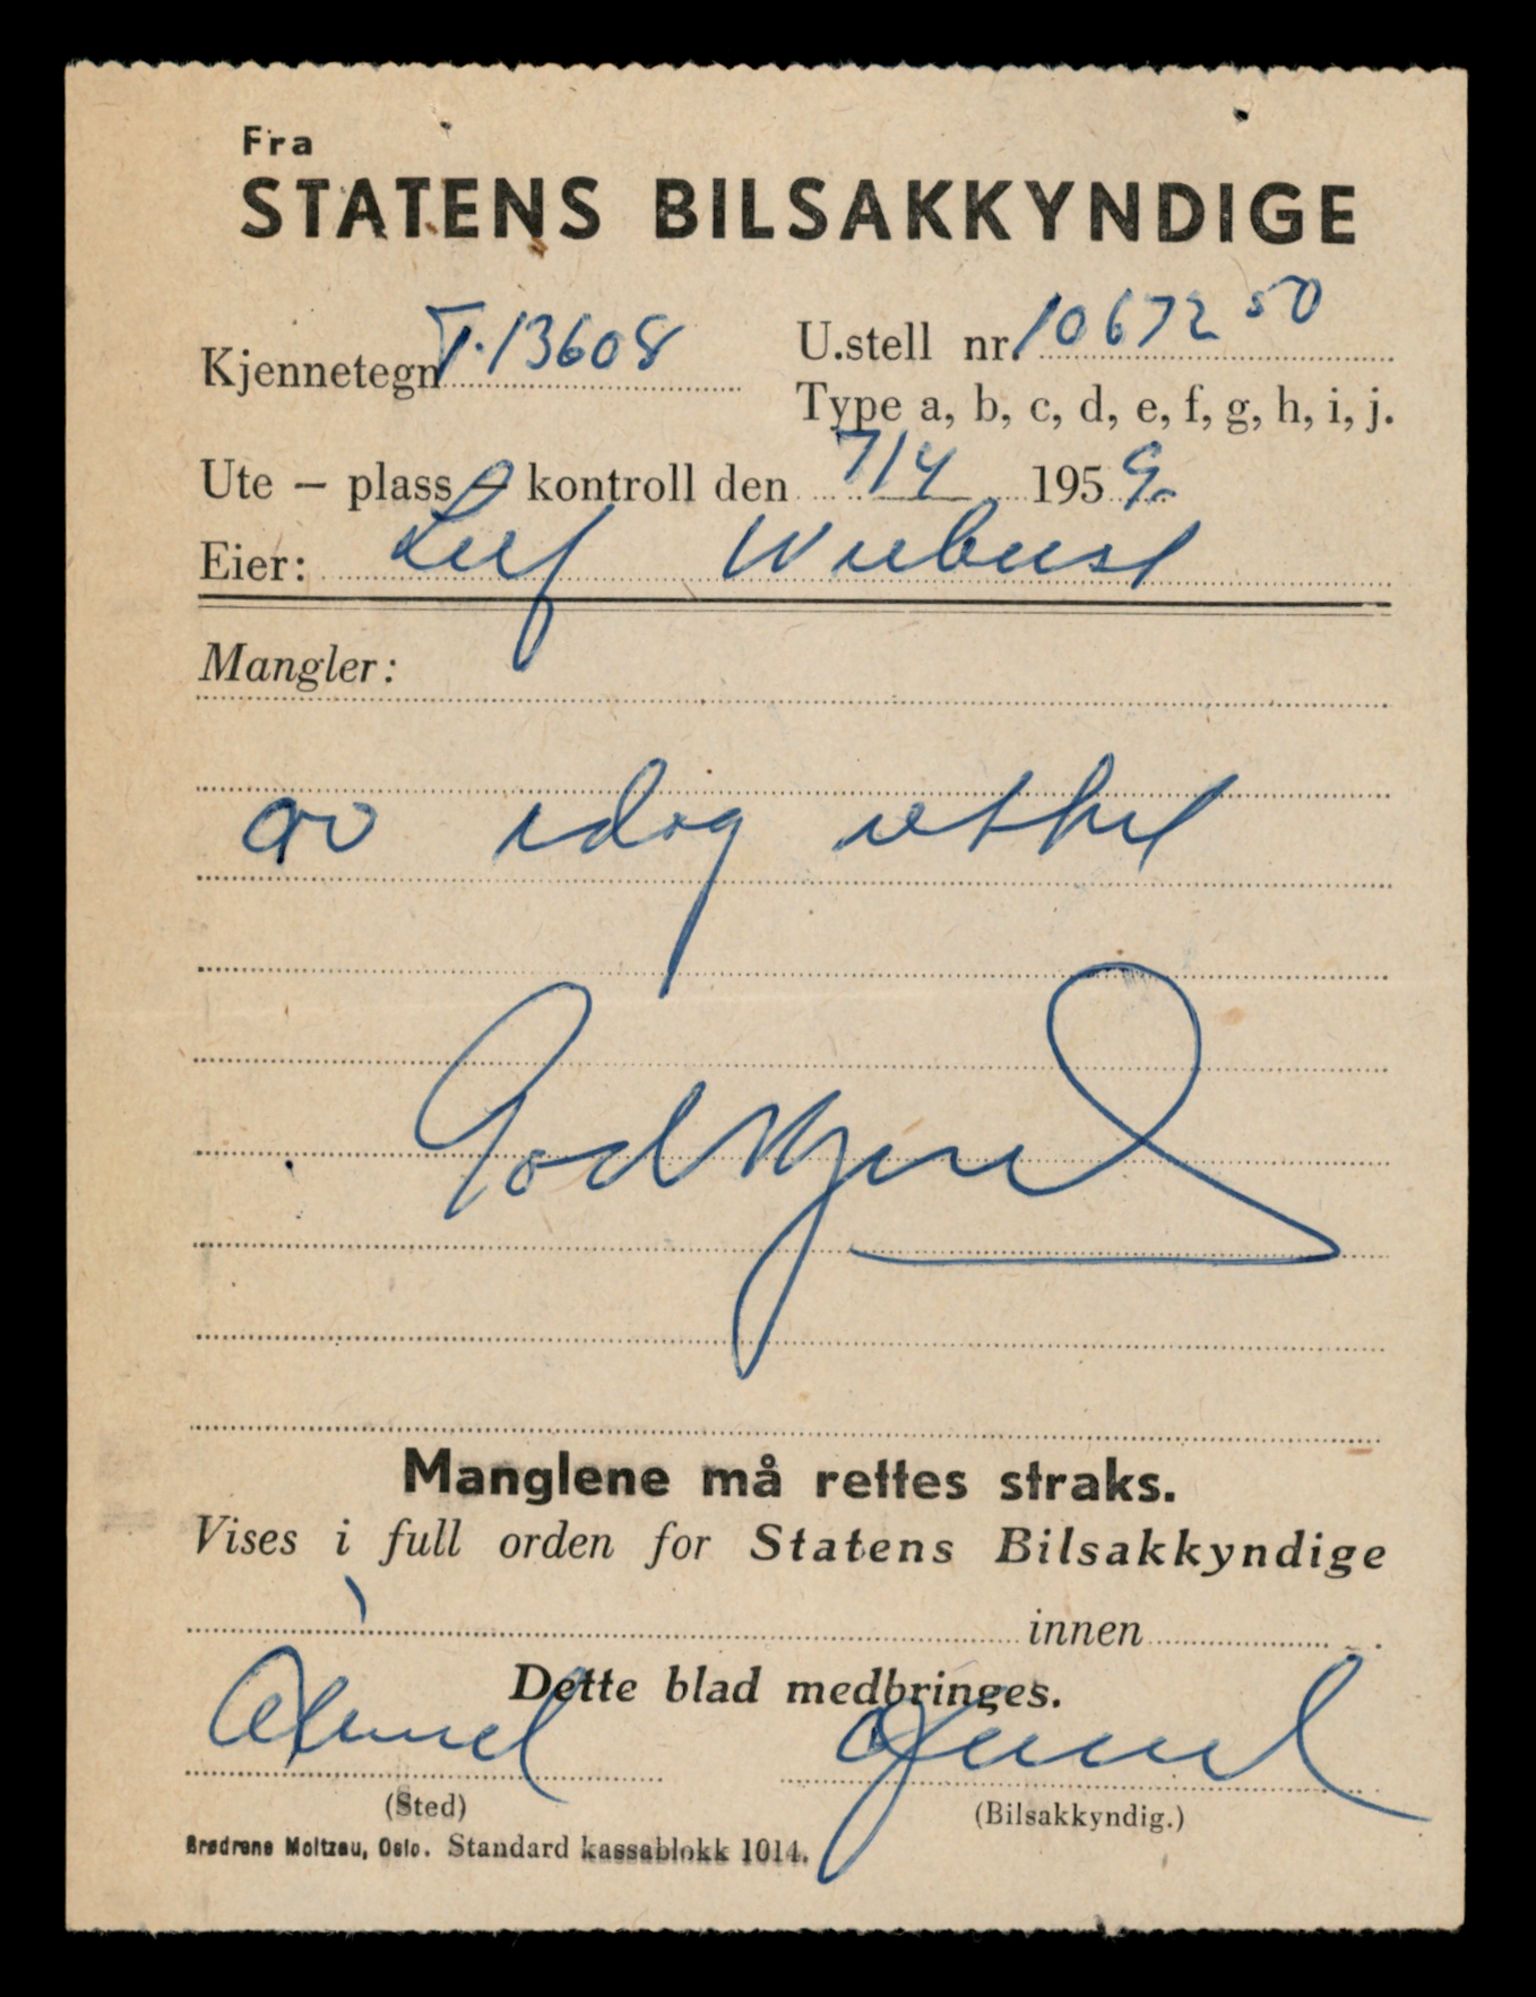 Fra
STATENS BILSAKKYNDIGE
Kjennetegn T.13608 U.stell nr. 1067250
Type a, b, c, d, e, f, g, h, i, j.
Ute – plass – kontroll den 7/4 1959.
Eier: Leif
Mangler:
av idag
Godkjent
Manglene må rettes straks.
Vises i full orden for Statens Bilsakkyndige
innen
Dette blad medbringes.
(Sted) (Bilsakkyndig.)
Brødrene Moltzau, Oslo. Standard kassablokk 1014.